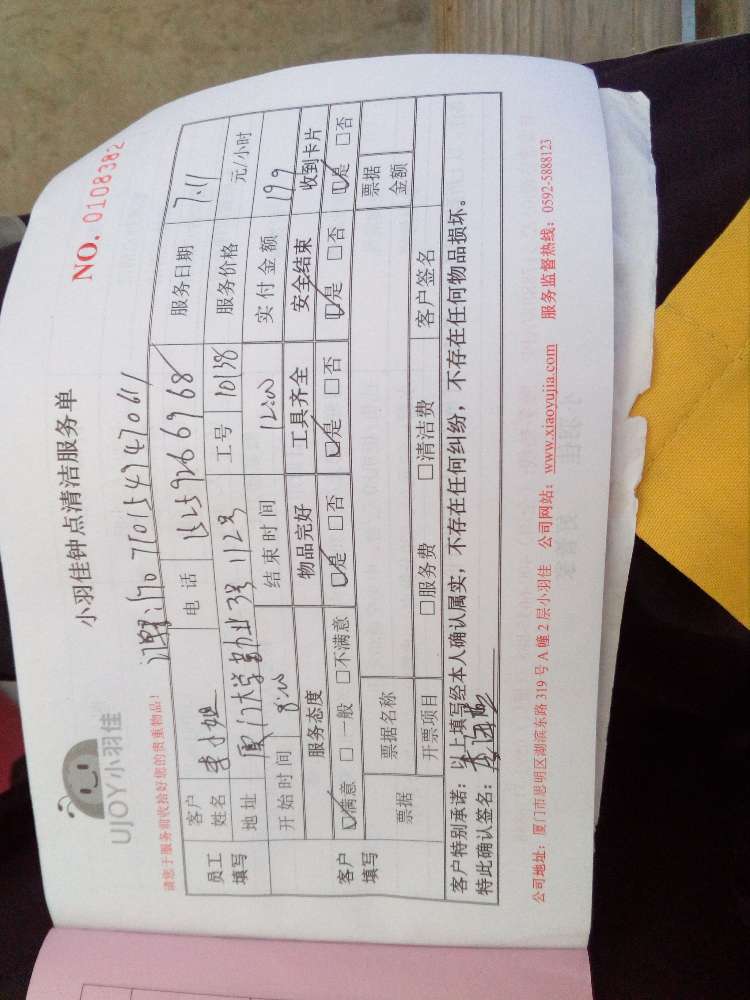 UJOY小羽佳
小羽佳钟点清洁服务单
NO. 0108382
请您于服务前收拾好您的贵重物品!
710154947061
员工填写
客户姓名 李小姐 电话 15259266968 服务日期 7.11
地址 厦门大学勤业3号112号 工号 10138 服务价格 元/小时
客户填写
开始时间 8:00 结束时间 12:00 实付金额 199
服务态度 物品完好 工具齐全 安全结束 收到卡片
☑满意 □一般 □不满意 ☑是 □否 ☑是 □否 ☑是 □否 ☑是 □否
票据 票据名称 票据金额
开票项目 □服务费 □清洁费 客户签名
客户特别承诺：以上填写经本人确认属实，不存在任何纠纷，不存在任何物品损坏。
特此确认签名：
公司地址：厦门市思明区湖滨东路319号A幢2层小羽佳 公司网站：www.xiaoyujia.com 服务监督热线：0592-5888123